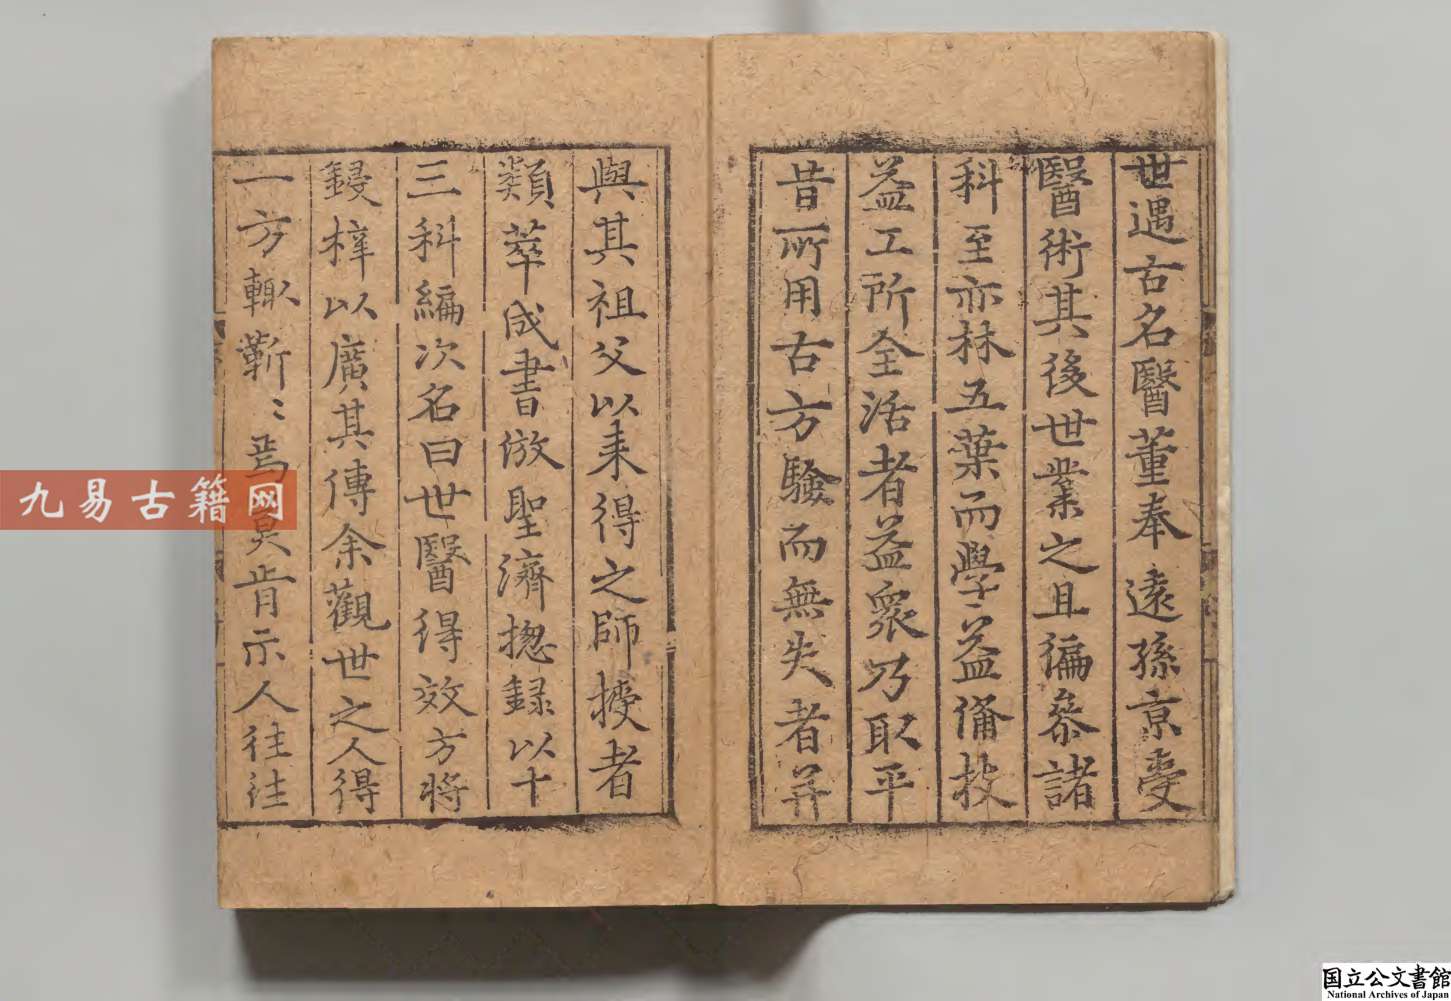 世遇古名醫董奉遠孫京受
醫術其後世業之且徧叅諸
科至亦林五葉而學〻益備技
益工所全活者益衆乃取平
昔所用古方驗而無失者并
與其祖父以来得之師授者
類萃成書倣聖濟揔録以十
三科編次名曰世醫得效方将
鋟梓以廣其傳余觀世之人得
一方輙靳〻焉莫肯示人往往
九易古籍网
国立公文書館
National Archives of Japan